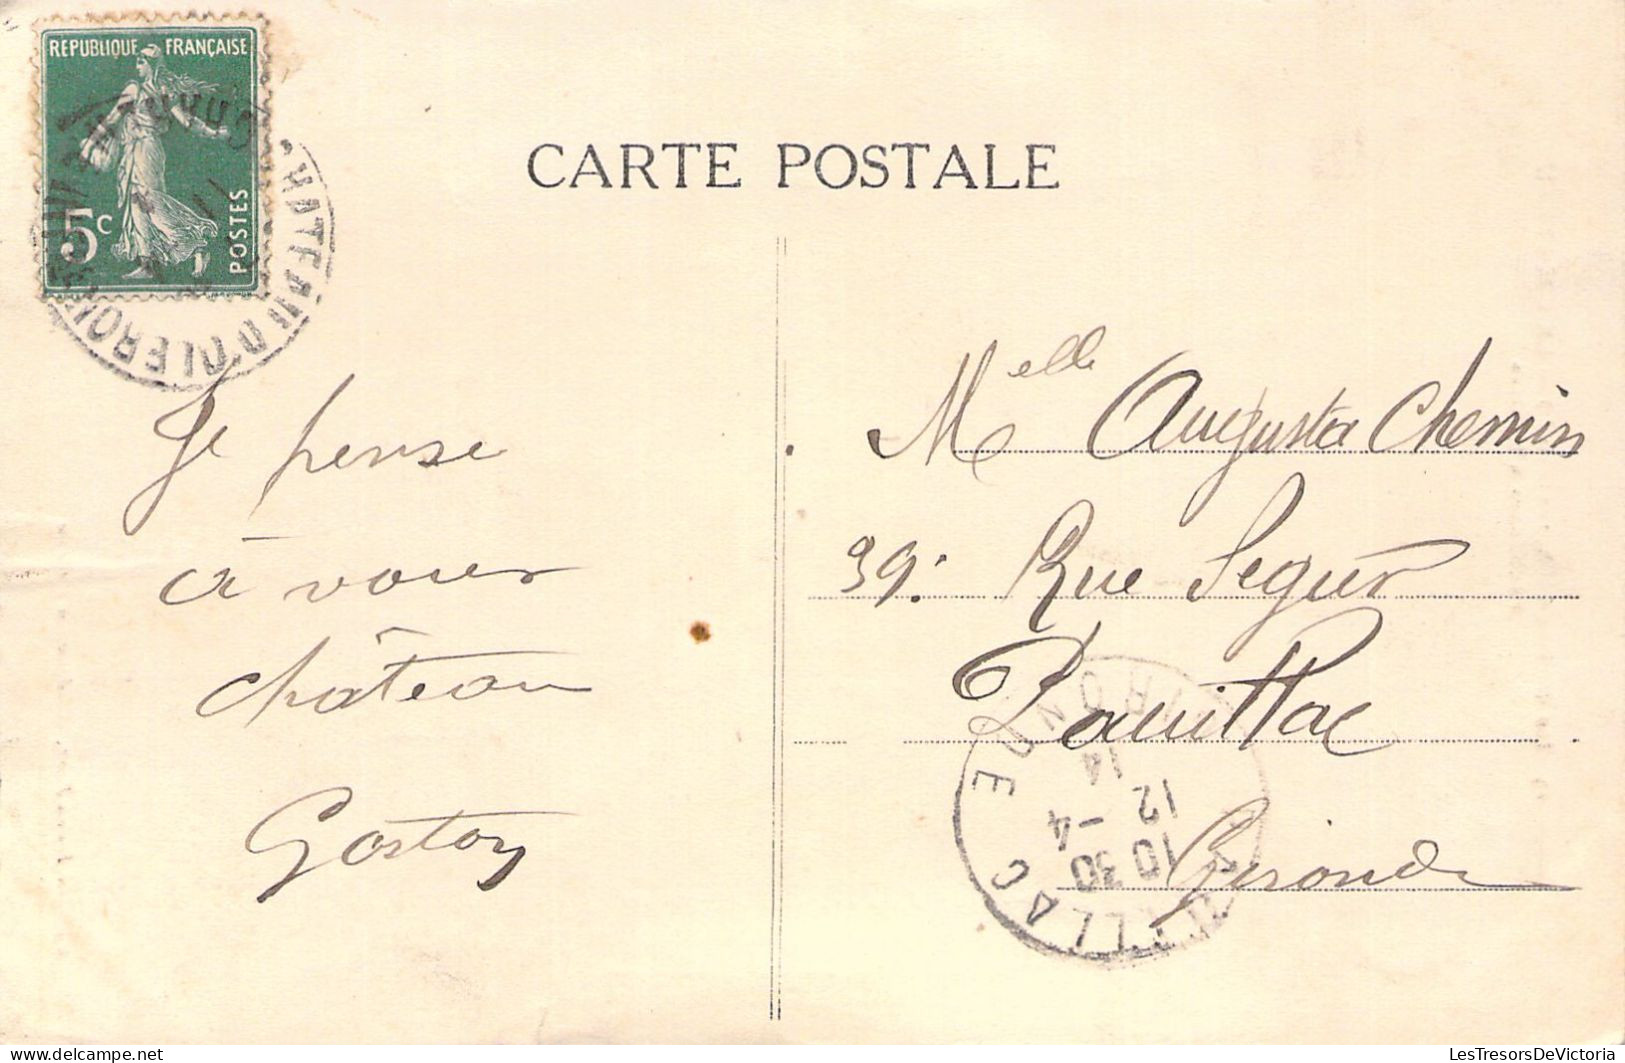 REPUBLIQUE FRANÇAISE
5c
POSTES
CHATEAU D'OLERON
CARTE POSTALE
Je pense
à vous
château
Gaston
Melle Augusta Chemin
39: Rue Segur
Pauillac
Gironde
PAUILLAC
GIRONDE
10 30
12 -4
14
delcampe.net
LesTresorsDeVictoria